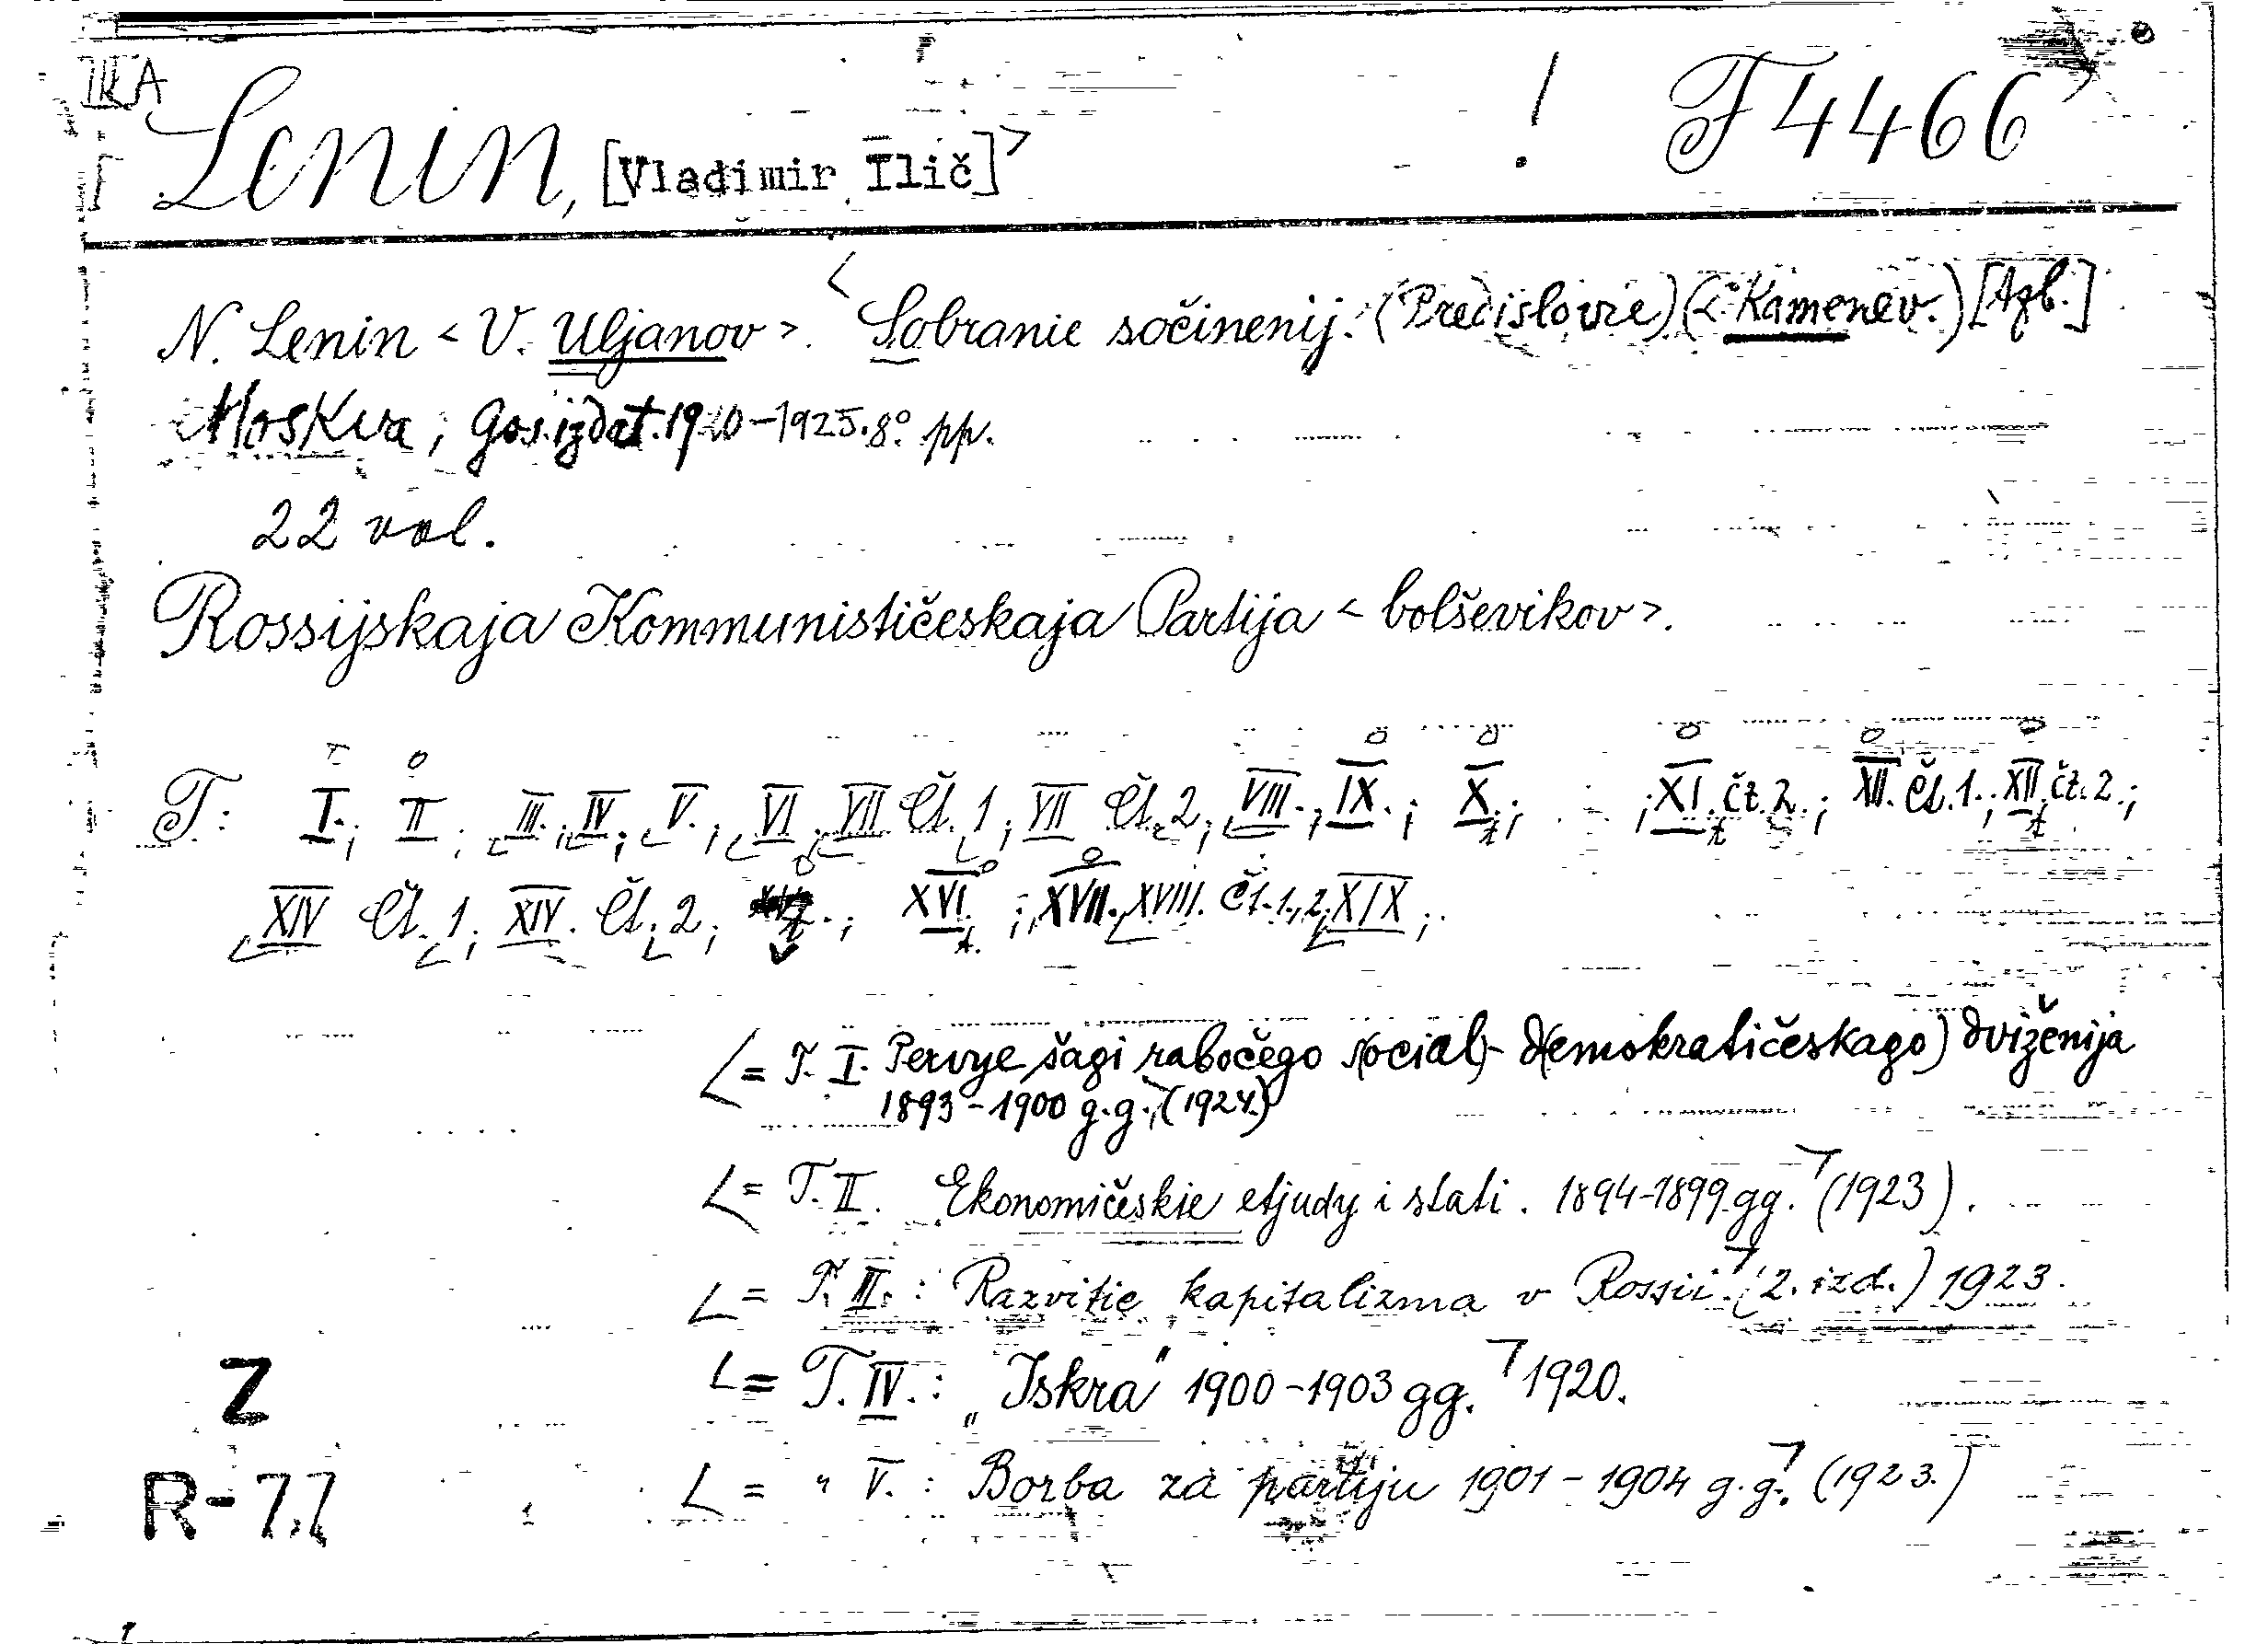 IKA
Lenin, [Vladimir Ilič] ! F 4466
N. Lenin < V. Uljanov >. Sobranie sočinenij. (Predislovie) (L. Kamenev.) [Azb.]
Moskva, Gos.izdat. 1920-1925. 8°. pp.
22 vol.
Rossijskaja Kommunističeskaja Partija < bolševikov >.
T: I.; II; III.; IV.; V.; VI; VII Čt. 1; VII Čt. 2; VIII.; IX.; X.; ; XI. čt. 2.; XII. Čt. 1.; XII. čt. 2.;
XIV Čt. 1; XIV. Čt. 2; XVI.; XVII.; XVIII. Čt. 1., 2; XIX;.
= T. I. Pervye šagi rabočego s(ocial)- d(emokratičeskago) dviženija
1893-1900 g.g., (1924.)
= T. II. Ekonomičeskie etjudy i stati. 1894-1899 gg. (1923).
= T. III. : Razvitie kapitalizma v Rossii. (2. izd.) 1923.
= T. IV. : „Iskra" 1900-1903 gg. 1920.
Z
= " V. : Borba za partiju 1901-1904 g.g. (1923.)
R-77